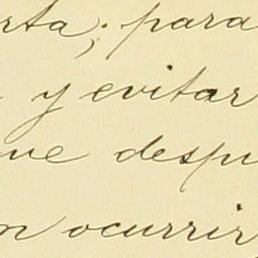 rta; para
y evitar
ue despu
n ocurrir